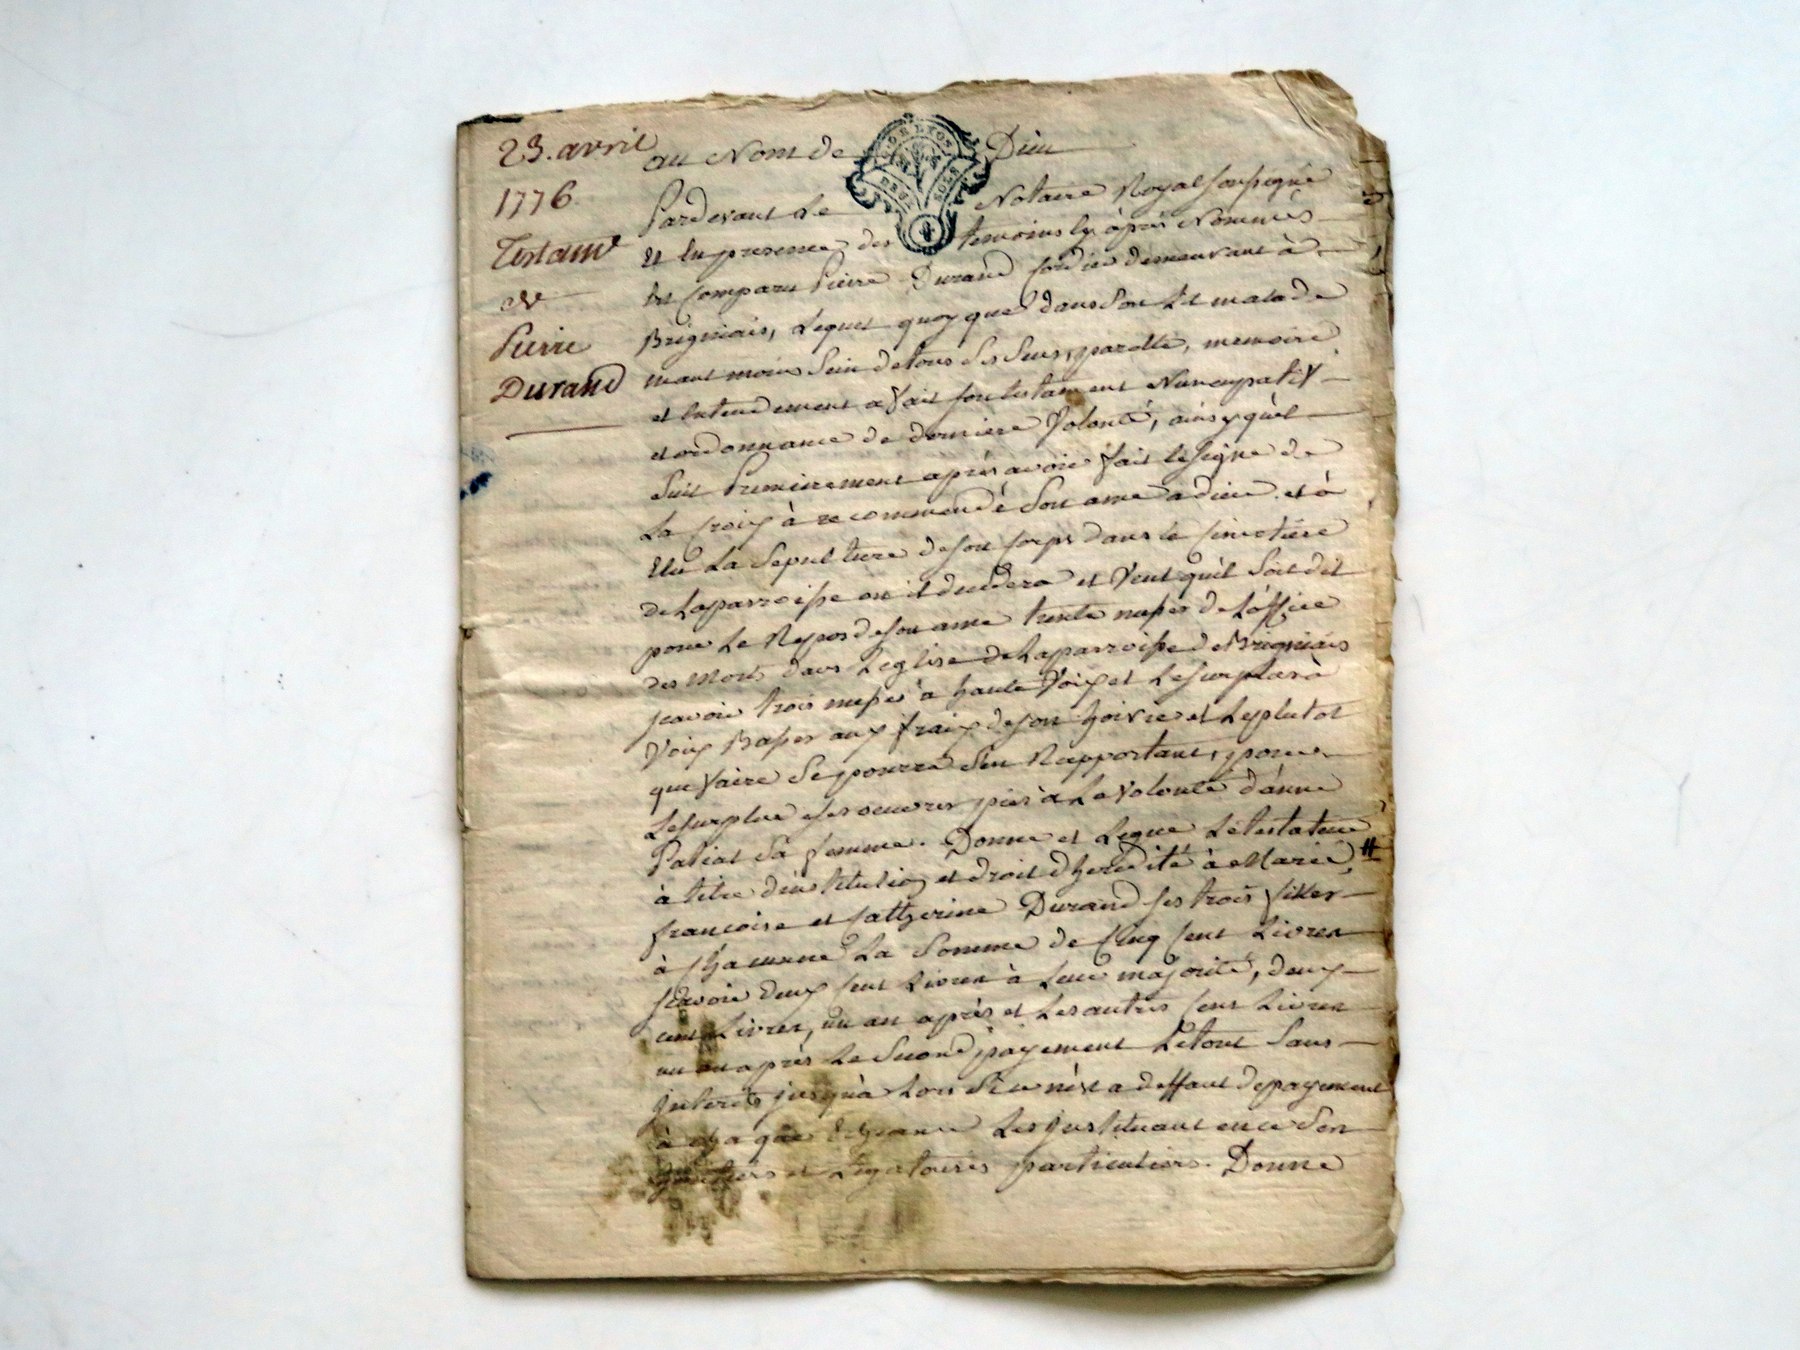 23. avril
1776
Testamt
de
Pierre
Durand
au Nom de Dieu
Pardevant Le Notaire Royal soussigné
Et En presence des temoins Cy après Nommés
Est Comparu Pierre Durand Cordier demeurant à
Brigniais, Lequel quoy que dans son Lit malade
neant moins sein de tous ses sens, parolle, memoire
et Entendement a fait son testament Nuncupatif
et ordonnance de derniere Volonté, ainsy qu'il
suit Premierement après avoir fait le signe de
La Croix à recommendé son ame à dieu et à
Elu La sepulture de son Corps dans le Cimetière
de La parroisse ou il decedera et Veut qu'il soit dit
pour Le Repos de son ame trente messes de L'office
des Morts dans L'eglise de La parroisse de Brigniais
scavoir trois messes à haute Voix et Le surplus à
Voix Basses aux fraix de son hoirie et Le plutot
que faire se pourra s'en Rapportant, pour
Le surplus de ses oeuvres pies à La Volonté d'anne
Paliat sa femme. Donne et Legue Le testateur
à titre d'institution et droit d'heredité à Marie, #
francoise et Catherine Durand ses trois filles
à Chacune La somme de Cinq Cent Livres
scavoir deux Cent Livres à Leur majorité, deux
cent Livres, un an après et Les autres Cent Livres
un an après Le second payement Le tout sans
Interets jusqu'a Lors si ce n'est a deffaut de payement
à Chaque Echeance Les Instituant en ce ses
heritiers et Legataires particulieres. Donne